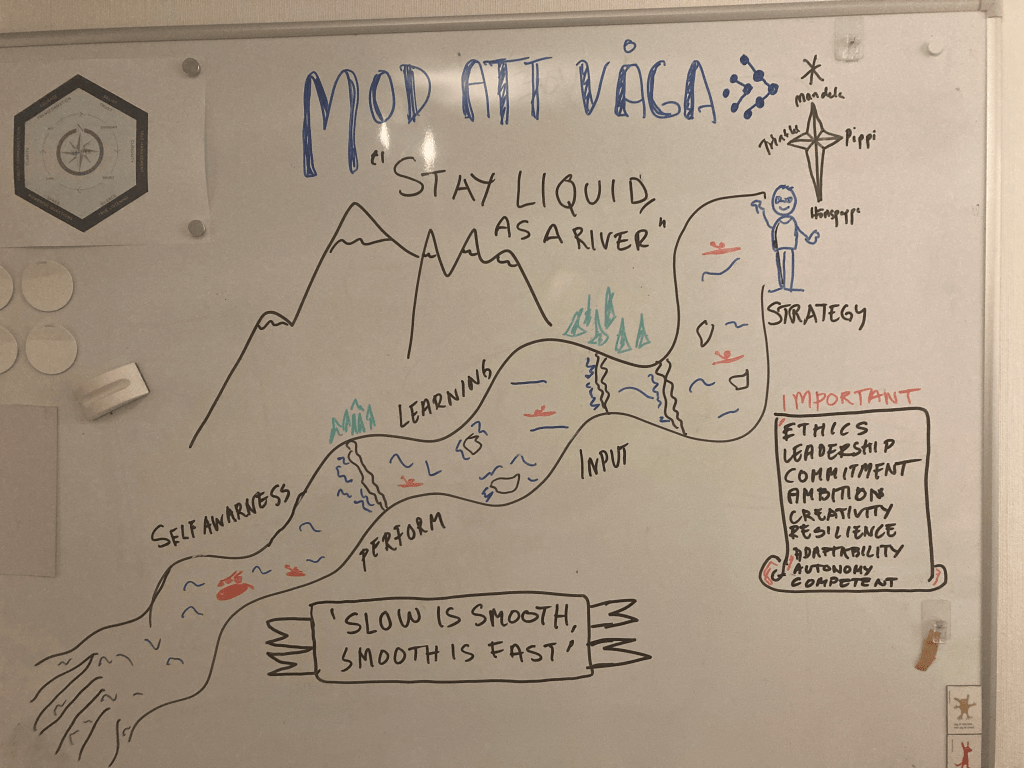 MOD ATT VÅGA
"STAY LIQUID,
AS A RIVER"
Mandela
Pippi
STRATEGY
LEARNING
INPUT
SELF AWARNESS
PERFORM
IMPORTANT
ETHICS
LEADERSHIP
COMMITMENT
AMBITION
CREATIVITY
RESILIENCE
ADAPTABILITY
AUTONOMY
COMPETENT
'SLOW IS SMOOTH,
SMOOTH IS FAST'